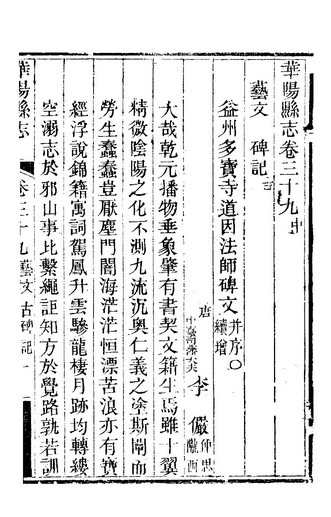 華陽縣志卷三十九中
藝文 碑記 古
益州多寶寺道因法師碑文 并序〇 續增
唐 中臺司藩大夫 李儼 仲思 隴西
大哉乾元播物垂象肇有書契文籍生焉雖十翼
精微陰陽之化不測九流沉奧仁義之塗斯闡而
勞生蠢蠢豈厭塵門闇海茫茫恒漂苦浪亦有寶
經浮說錦籍寓詞駕鳳升雲驂龍棲月跡均轉縷
空溺志於邪山事比繫繩詎知方於覺路孰若訓
華陽縣志 卷三十九 藝文 古碑記 一